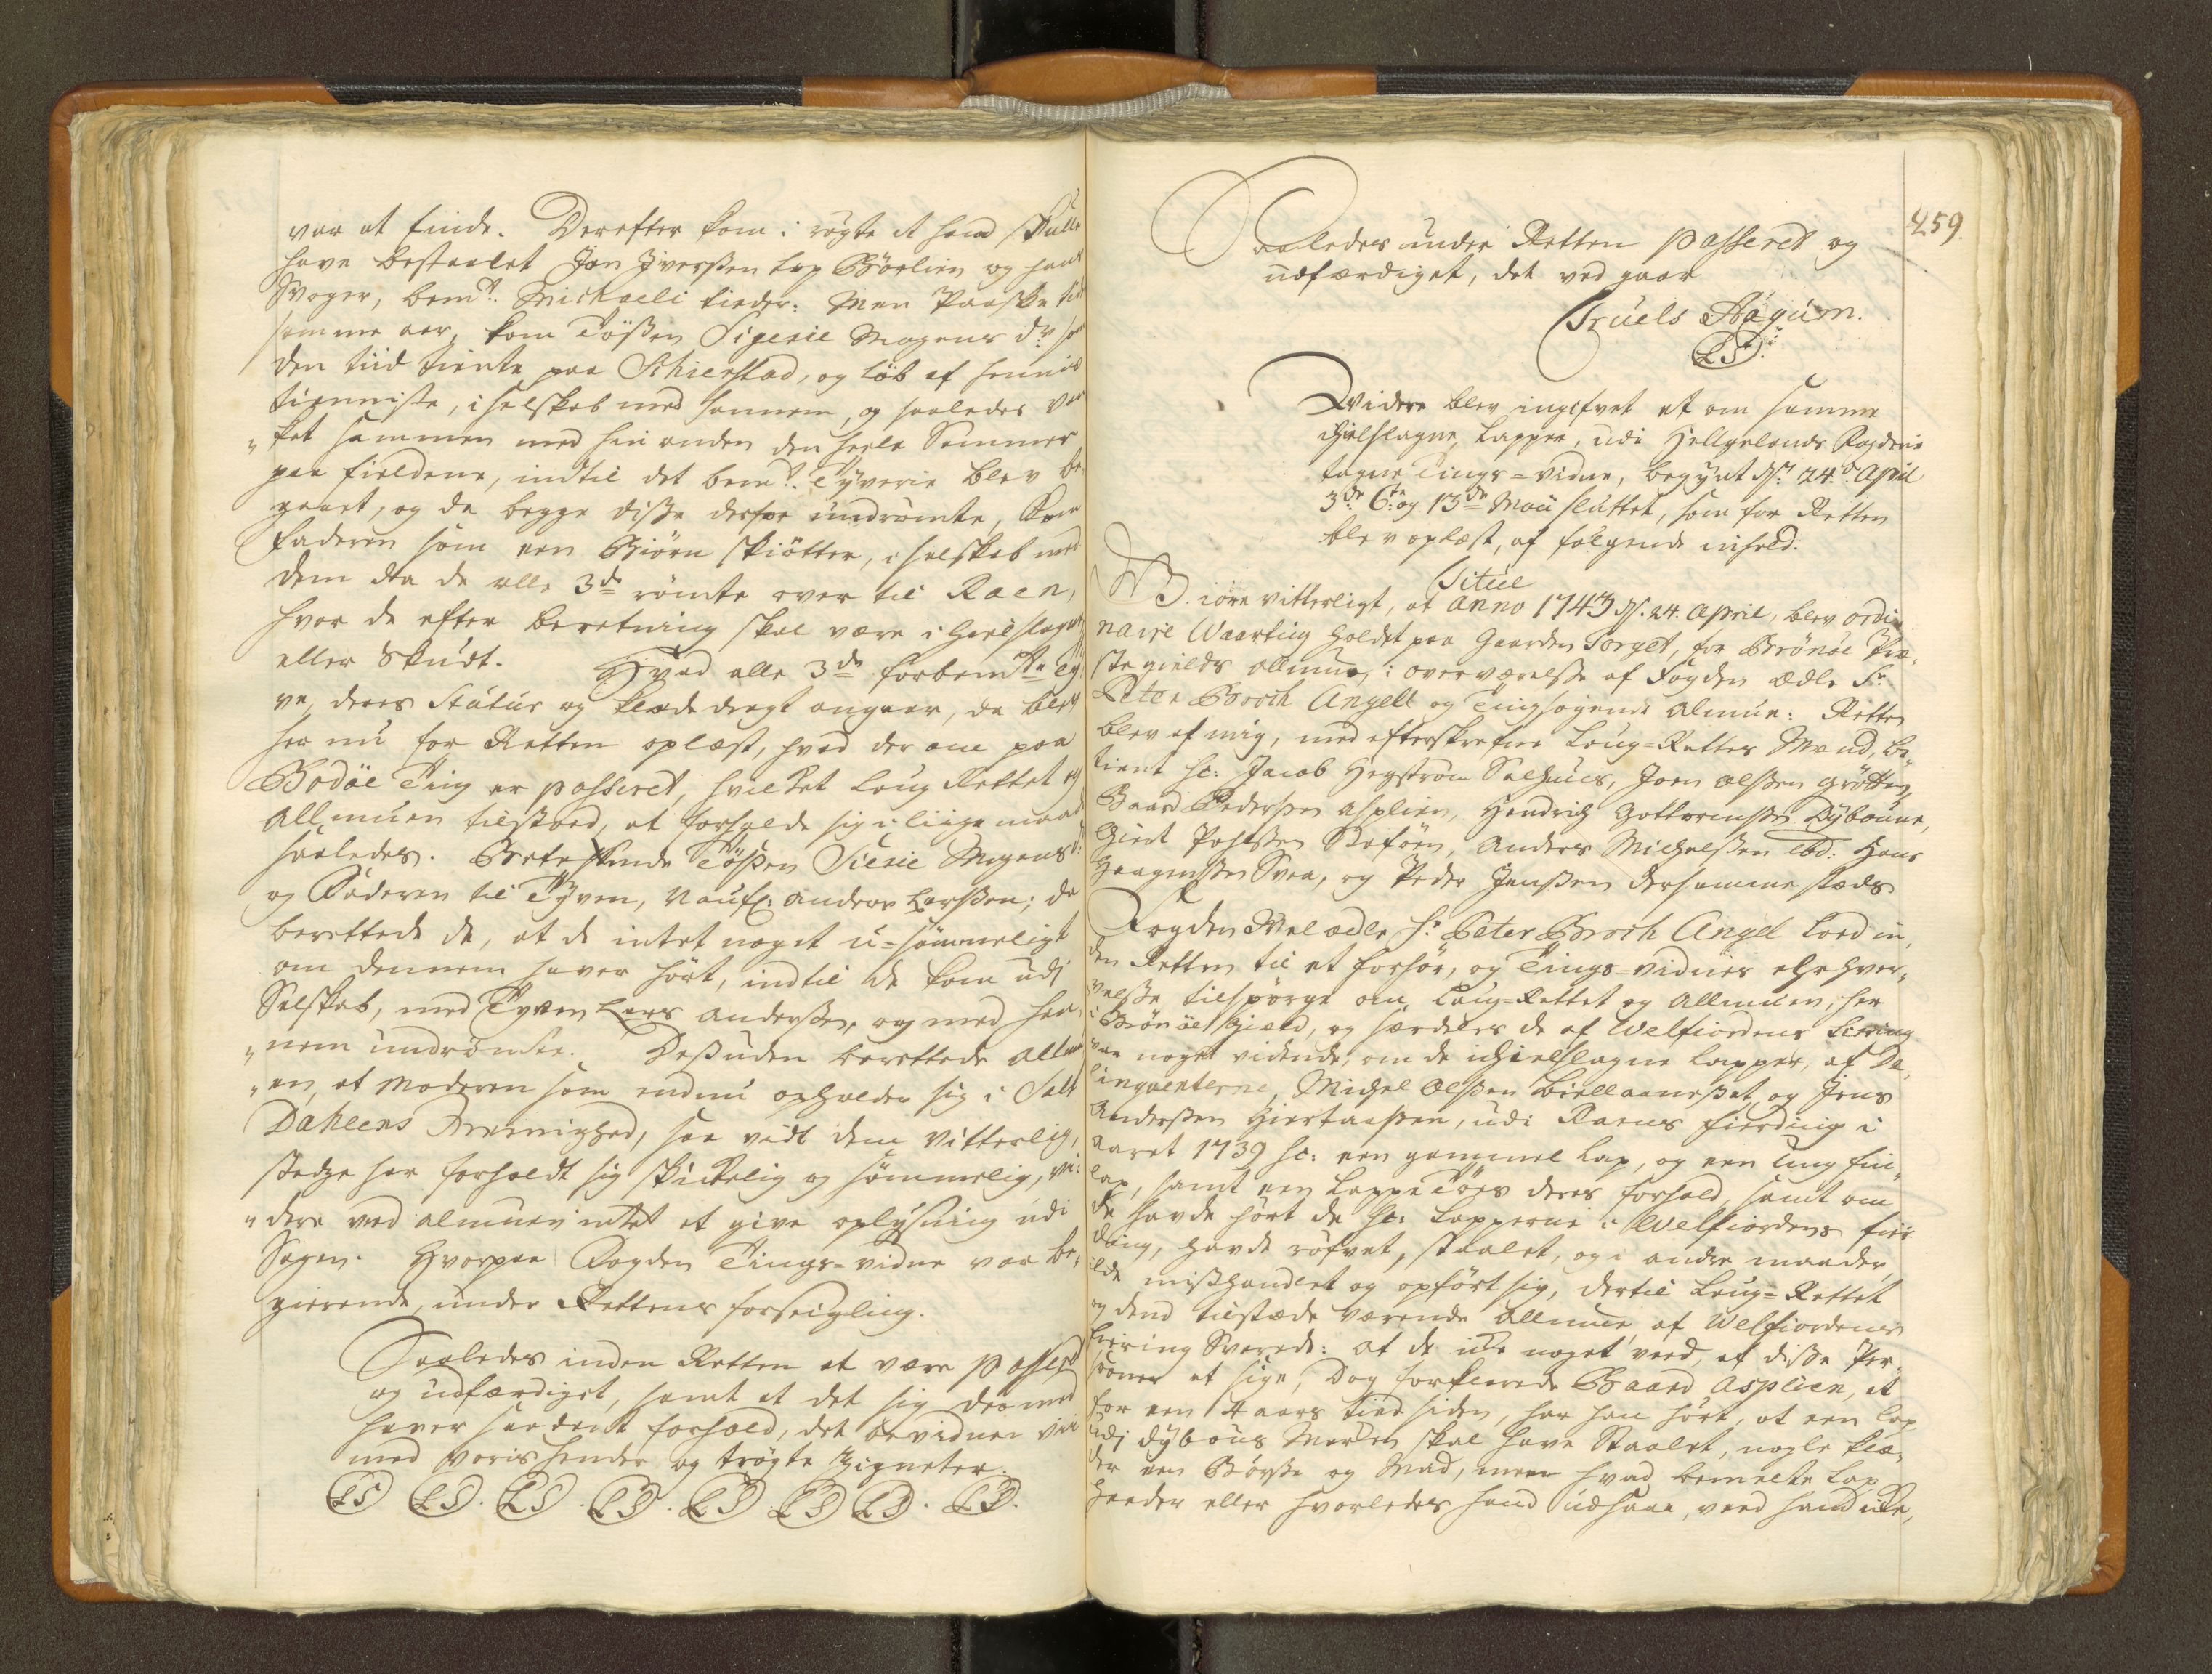 var at finde. Derefter kom i røgte at hand skulle
have bestaalet Jon Iverssen Lap Børlien og hans
Svoger, bemte. Michaeli tieder: Men Paaske tid
samme aar, kom Tøssen Sigerie Mogens dr. som
den tiid tiente paa Schierstad, og løb af hennis
tienniste, i selskab med hannem, og saaledes var
ket sammen med hin anden den heele Sommer
paa fieldene, indtil det bemte. Tÿverie blev be
gaaet, og da begge disse derfor undrømte, kom
faderen som een Biørn skiøtter, i selskab med
dem da de alle 3de rømte over til Raen,
hvor de efter beretning skal være ihielslagne
eller skudt. Hvad alle 3de forbemte Tÿ
ve, deres Statur og klædedragt angaar, da blev
her nu for Retten oplæst, hvad der om paa
Bodøe Ting er passeret, hvilket Laug Rettet og
Allmuen tilstoed, at forholde sig i liige maade
saaledes. Betreffende Tøssen Sicerie Mogens dr.
og Faderen til Tÿven, naufl: Anders Larssen; da
berettede de, at de intet noget u-sømmeligt
om dennem haver hørt, indtil de kom udj
Selskab, med Tyven Lars Anderssen, og med han
nem undrømte. Dessuden berettede Allmu
en, at Moderen som endnu opholder sig i Salt
Dahlens Annerighed, saa vidt dem vitterlig,
stedze har forholdt sig skikkelig og sømmelig, vi:
dere ved almuen intet at give oplysning udi
Sagen. Hvorpaa Fogden Tings-vidne var be,
gierende, under Rettens forseigling.
Saaledes inden Retten at være passeret
og udfærdiget, samt at det sig dermed
haver saadant forhold, det bevidner vi
med voris hender og trøgte Zigneter.
LS LS. LS. LS. LS LS LS. LS.
459.
Saaledes under Retten passeret og
udfærdiget, det ved gaar
Truels Hagúm.
LS.
Widere blev ingifvet et om samme
ihielslagne Lapper, udi Helgelands Fogderie
tagne Tings-vidne, begÿnt d. 24de April
3de 6te og 13de Maii sluttet, som for Retten
blev oplæst, af følgende inhold.
Titul
Giøre vitterligt, at Anno 1743 d. 24. April, blev ordi
naire Waarting holdt paa Gaarden Torget, for Brønøe Præ,
stegields allmue, i overværelse af Fogden ædle Sr
Peter Broch Angell og Tingsøgende Almue: Retten
blev af mig, med efterskrefne Laug-Rettes Mænd, be
tient sc: Jacob Hegstrøm Salhuus, Joen Olssen Grøtten,
Baard Pederssen Asplien, Hendrich Gottormssen Dÿbouve,
Gunt Pohlssen Storøen, Anders Michelssen ibd: Hans
Haagenssen Sven, og Peder Jenssen dersammestæds
Fogden Velædle Sr Peter Broch Angel lod in,
den Retten til et forhør, og Tings-vidnes ehrhver,
velse tilspørge om, Laug-Rettet og Allmuen, her
i Brønøe Gield, og særdeles de af Welfiordens Fiering
var noget vidende, om de ihielslagne Lapper, af De
linqventerne, Michel Olssen Biellaanesset, og Jens
Anderssen Hiertaassen, udi Raens fierding i
aaret 1739 sc: een gammel Lap, og een ung fin,
lap, samt een Lappe Tøes deres forhold, samt om
de havde hørt de sc: Lapperne i Welfiordens fier
ding, havde røfvet, staalet, og i andre maader
ilde mishandlet og opført sig, dertil Laug-Rettet
og dend tilstæde værende Allmue, af Welfiordens
Fiering Svarede: at de icke noget veed, af disse Per
sooner at sige, Dog forklarede Baard Asplien, at
for een 4 aars tiid siden, har han hørt, at een Lap
udj Dÿbous Marken skal have Staalet, nogle klæ,
der een Børsse og Mad, men hvad bemelte Lap
heeder eller hvorledes hand udsaae, veed hand icke,